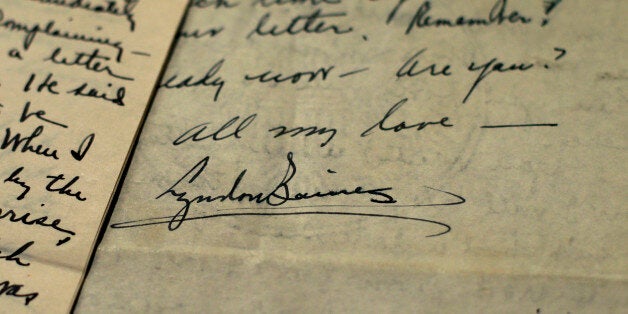 mmediately
complaining—
a letter
He said
be
When I
by the
rise,
was
letter. Remember?
eady now— Are you?
all my love —
Lyndon Baines